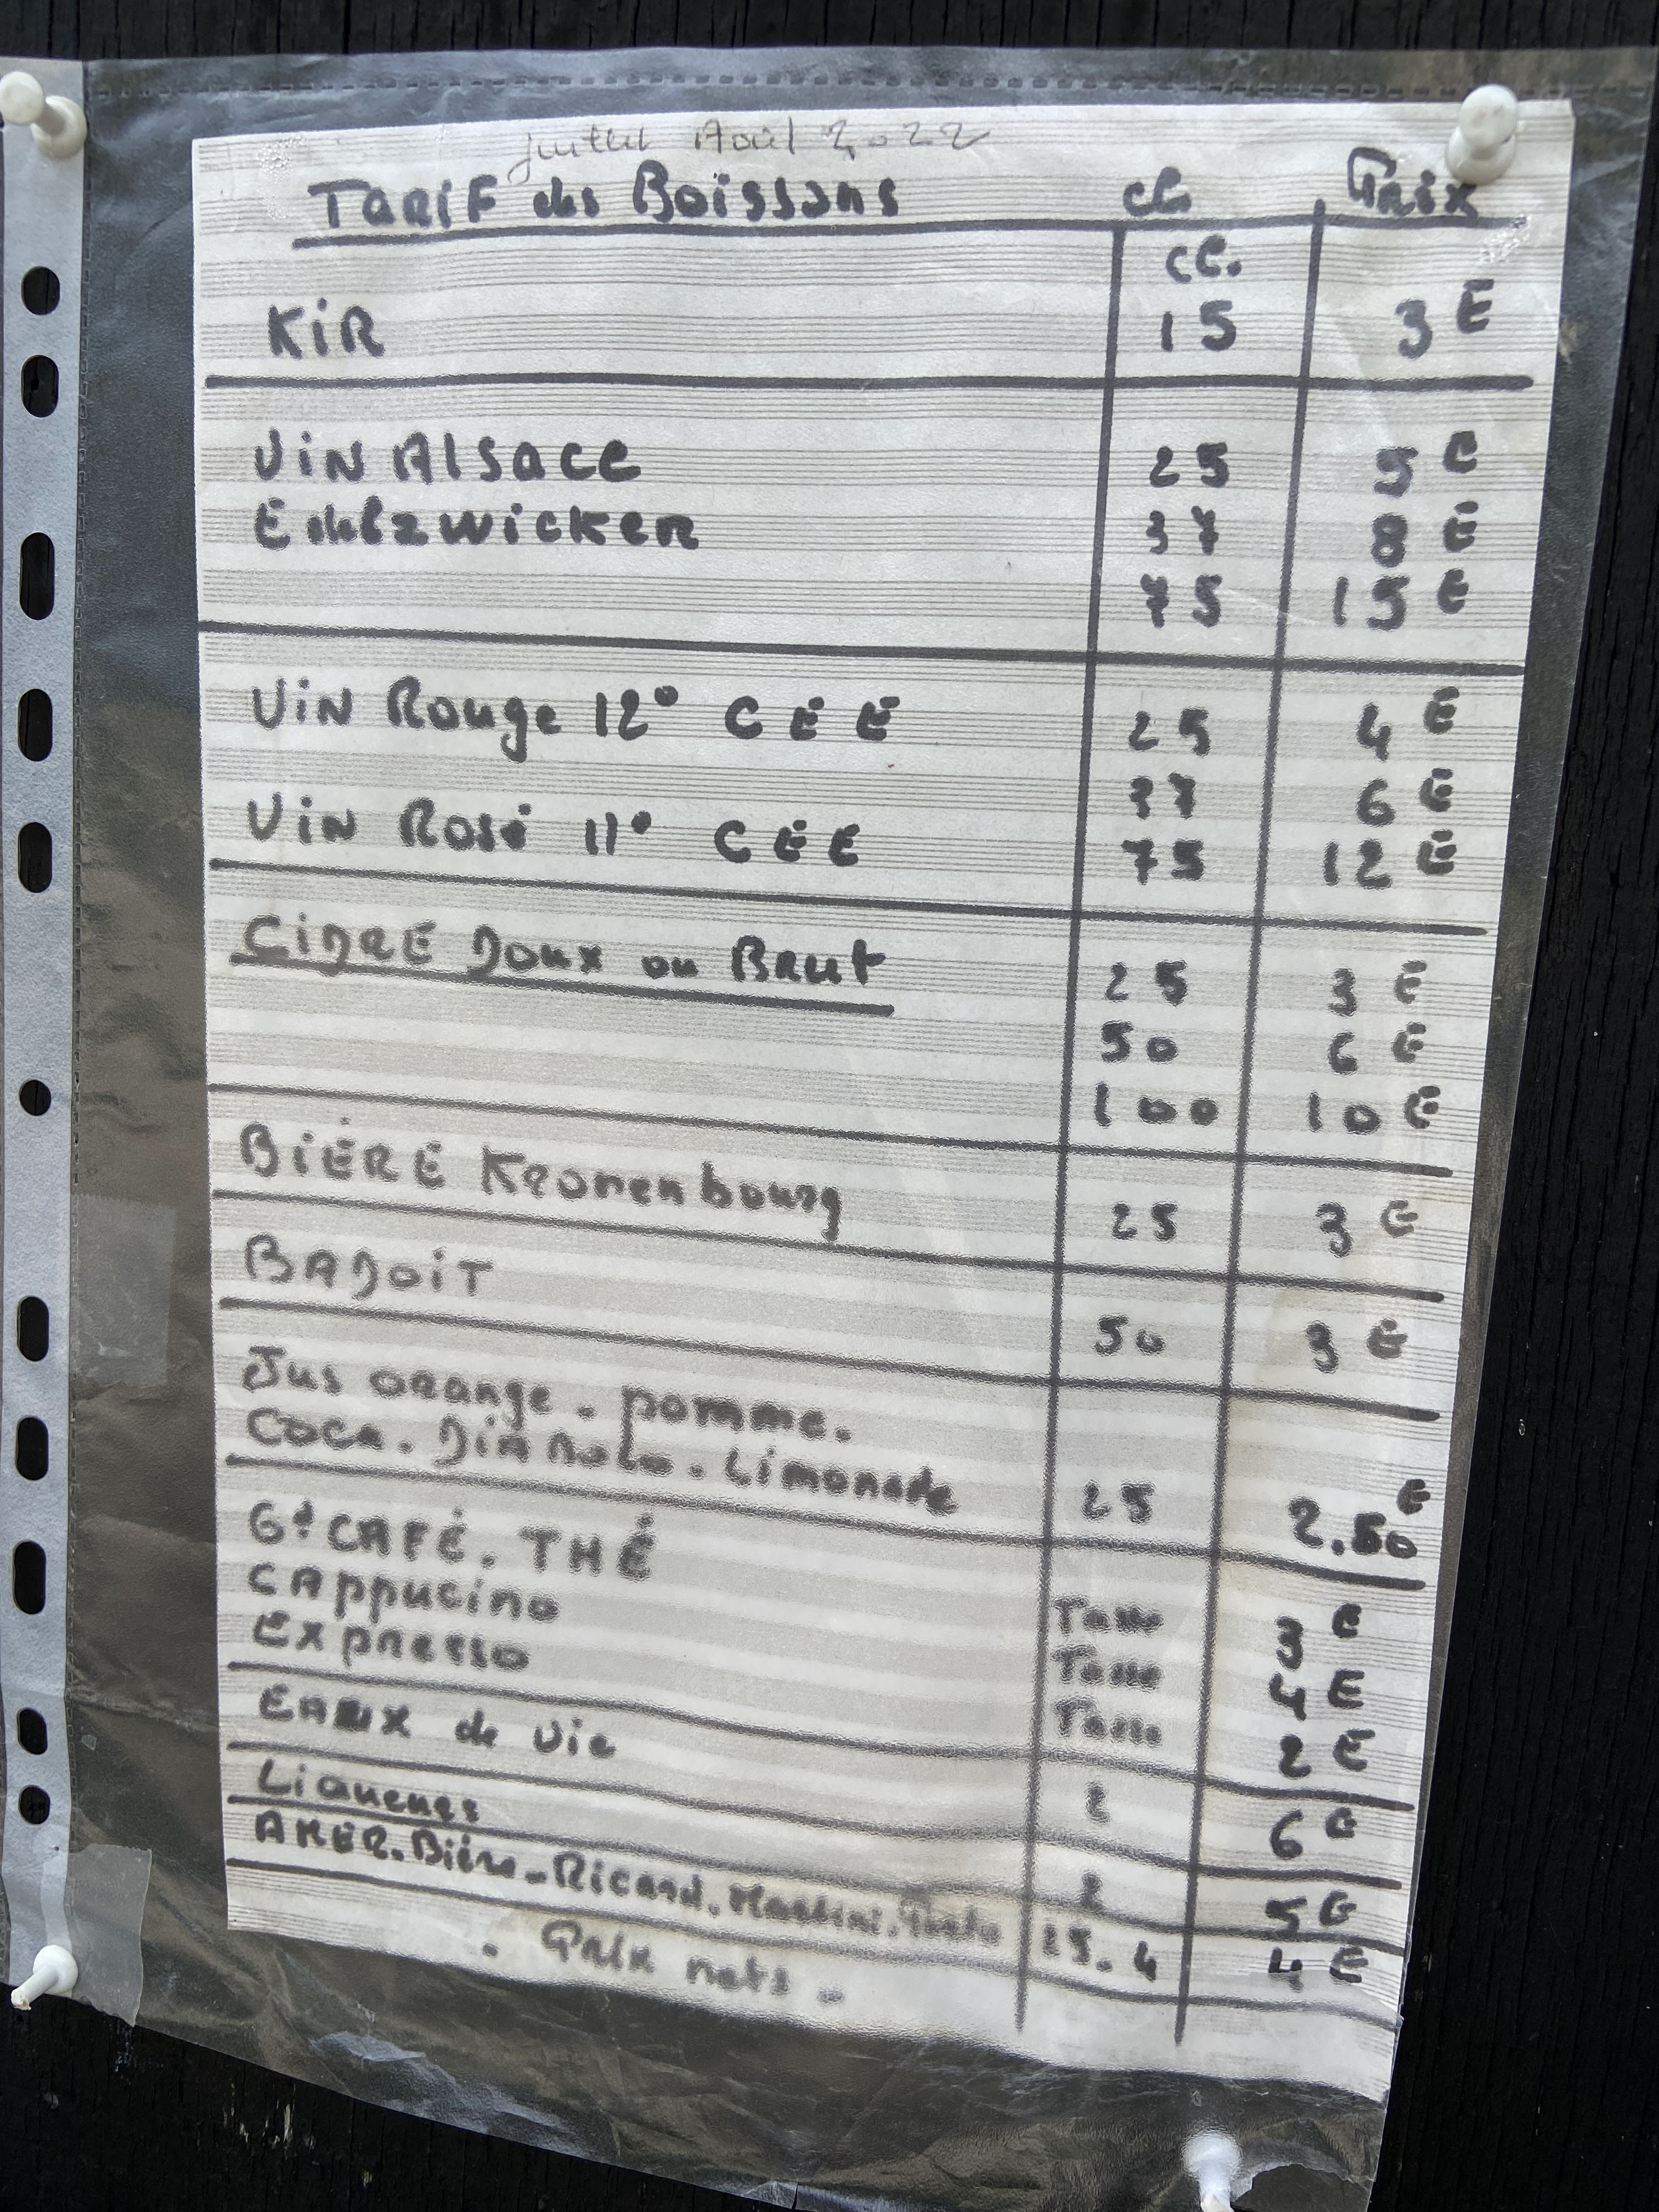 juillet Août 2022
TARIF des Boissons cl. Prix
cc.
KiR 15 3 E
ViN Alsace 25 5 E
Edelzwicker 37 8 E
75 15 E
ViN Rouge 12° C E E 25 4 E
37 6 E
ViN Rosé 11° C E E 75 12 E
CIDRE Doux ou Brut 25 3 E
50 6 E
100 10 E
BIÈRE Kronenbourg 25 3 E
BADOiT 50 3 E
Jus orange. pomme.
Coca. DiAbolo. Limonade 25 2.50 E
Gd CAFÉ. THÉ Tasse 3 E
CAppucino Tasse 4 E
Expresso Tasse 2 E
EAUX de Vie 2 6 E
Liqueurs 2 5 E
AMER. Bière - Ricard. Martini. Porto 25. 4 4 E
. Prix nets -